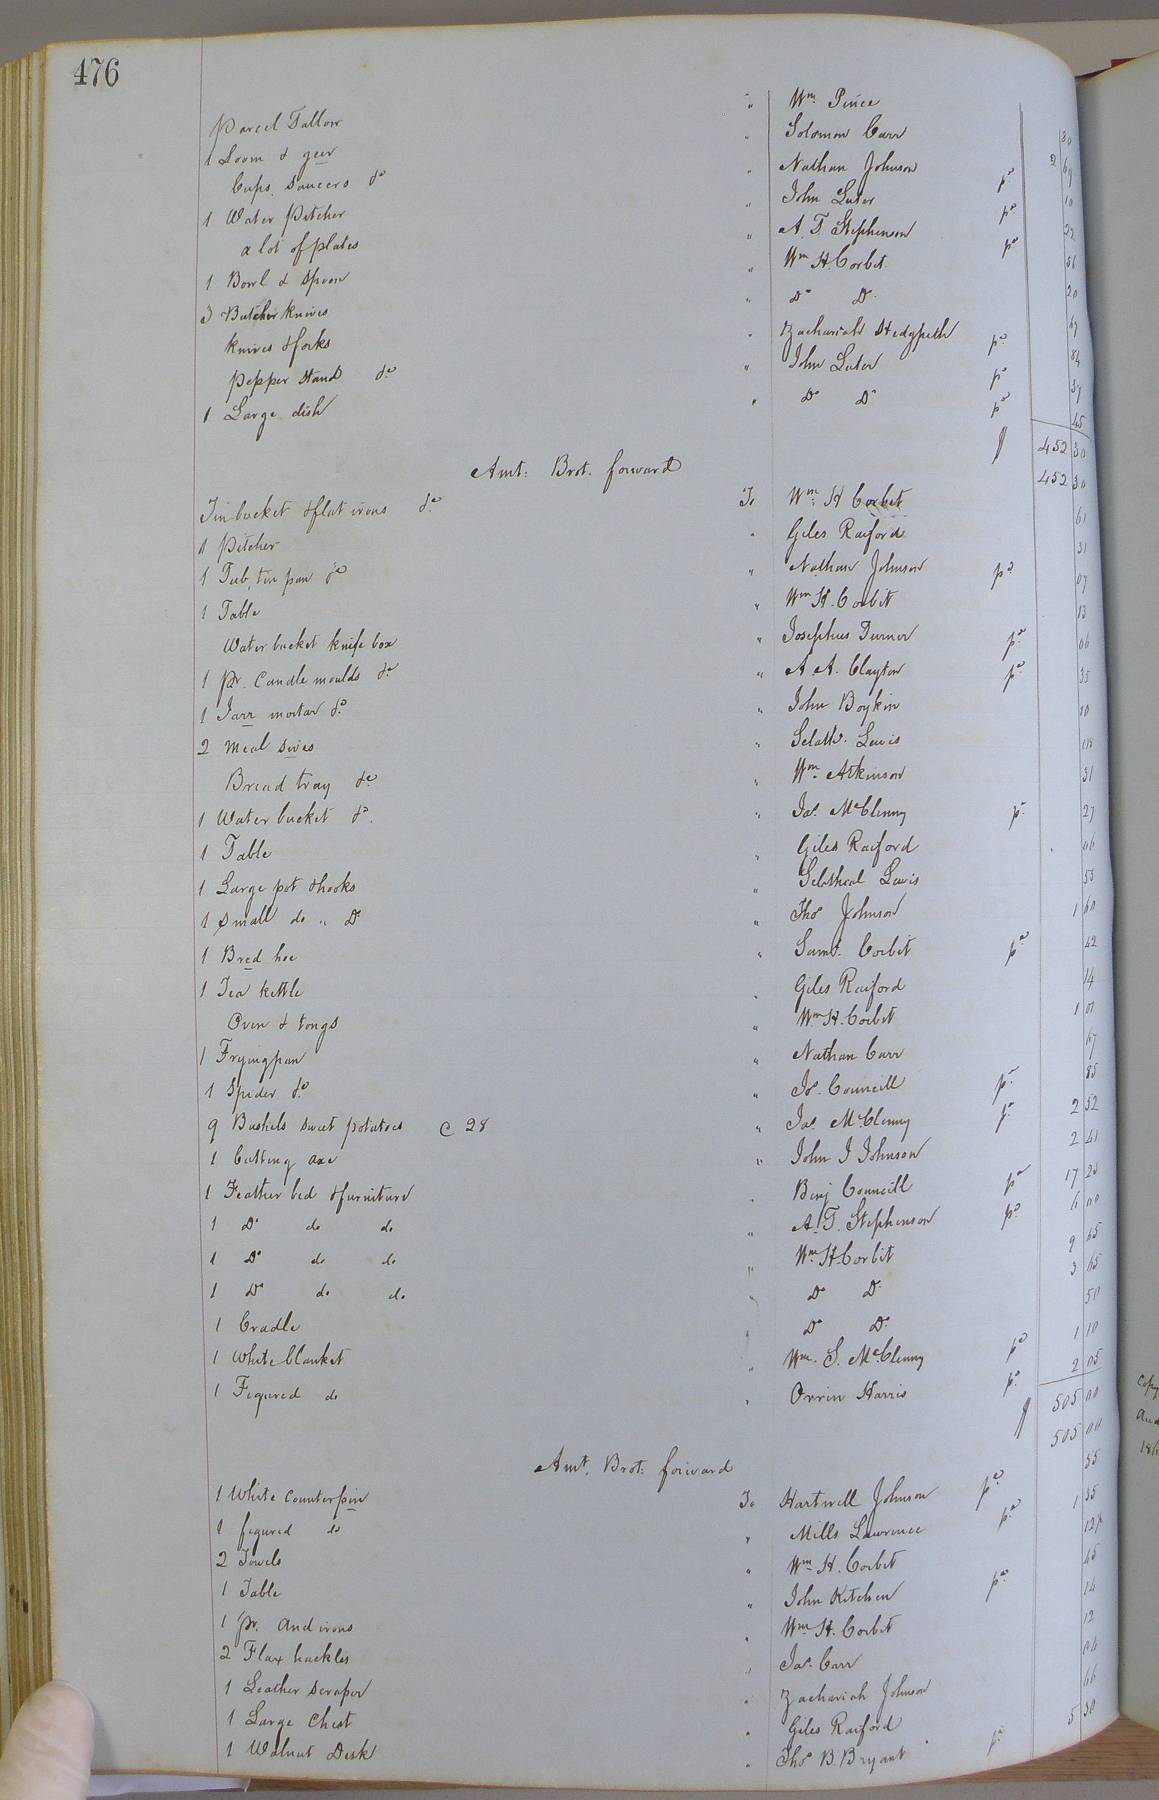 476
Parcel Tallow " Wm. Pince 80
1 Loom & geer " Solomon Carr 2 69
Cups, Saucers &c " Nathan Johnson pd 10
1 Water Pitcher " John Luter pd 22
a lot of plates " A. T. Stephenson pd 51
1 Bowl & Spoon " Wm H. Corbit 20
3 Butcher knives " Do Do
knives & forks " Zachariah Hedgpeth pd 84
Pepper Stand &c " John Luter pd 37
1 Large dish " Do Do pd 45
452 30
Amt: Brot. forward 452 30
Tin bucket & flat irons &c To Wm. H Corbit 61
1 Pitcher " Giles Raiford 31
1 Tub, tin pan &c " Nathan Johnson pd 07
1 Table " Wm H. Corbit 13
Water bucket knife box " Josephus Turner pd 06
1 pr. Candle moulds &c " A A. Clayton pd 35
1 Jarr mortar &c " John Boykin
2 Meal sives " Selath. Lewis
Bread tray &c " Wm. Atkinson 31
1 Water bucket &c. " Jas. McClenny pd 27
1 Table " Giles Raiford 06
1 Large pot & hooks " Selatheal Lewis 55
1 Small do " Do " Thos Johnson 1 60
1 Bred hoe " Saml. Corbit pd 42
1 Tea kettle " Giles Raiford 14
Oven & tongs " Wm. H. Corbit 1 01
1 Fryingpan " Nathan Carr 67
1 Spider &c " Js. Councill pd 85
9 Bushels sweet potatoes C 28 " Jas. McClenny pd 2 52
1 Cutting axe " John J Johnson 2 41
1 Feather bed & furniture " Benj Councill pd 17 25
1 Do do do " A. T. Stephenson pd 6 00
1 Do do do " Wm. H. Corbit 9 65
1 Do do do " Do Do 3 65
1 Cradle " Do Do 50
1 White blanket " Wm. S. McClenny pd 1 10
1 Figured do " Orrin Harris pd 2 05
505 00
Amt. Brot. forward 505 00
1 White Counterpin To Hartwell Johnson pd 55
1 figured do " Mills Lawrence pd 1 35
2 Towels " Wm H. Corbit 12½
1 Table " John Kitchen pd 45
1 pr. And irons " Wm H. Corbit 14
2 Flax hackles " Jas. Carr 12
1 Leather scraper " Zachariah Johnson
1 Large Chest " Giles Raiford 66
1 Walnut Desk " Thos B. Bryant pd 5 50